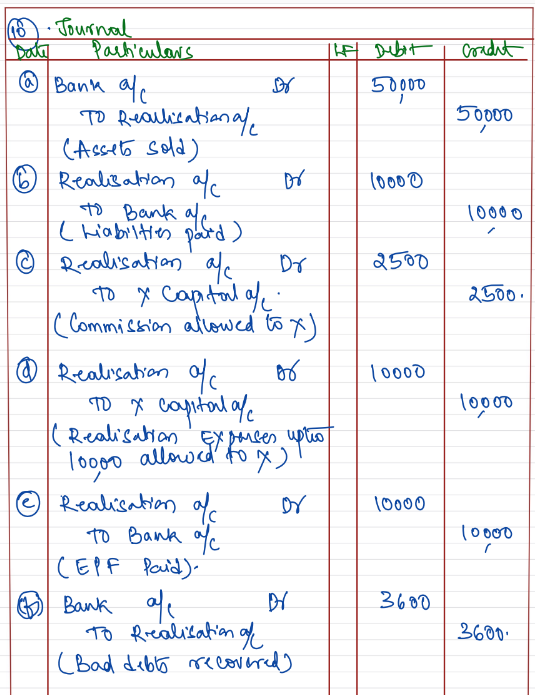 18. Journal
Date Particulars LF Debit Credit
(a) Bank a/c Dr 50,000
TO Realisation a/c 50,000
(Assets Sold)
(b) Realisation a/c Dr 10000
TO Bank a/c 10,000
(Liabilities paid)
(c) Realisation a/c Dr 2500
TO X Capital a/c. 2500.
(Commission allowed to X)
(d) Realisation a/c Dr 10000
TO X capital a/c 10,000
(Realisation Expenses upto
10,000 allowed to X)
(e) Realisation a/c Dr 10000
TO Bank a/c 10,000
(EPF Paid).
(f) Bank a/c Dr 3600
TO Realisation a/c 3600.
(Bad debts recovered)